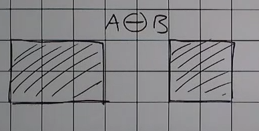 A⊖B